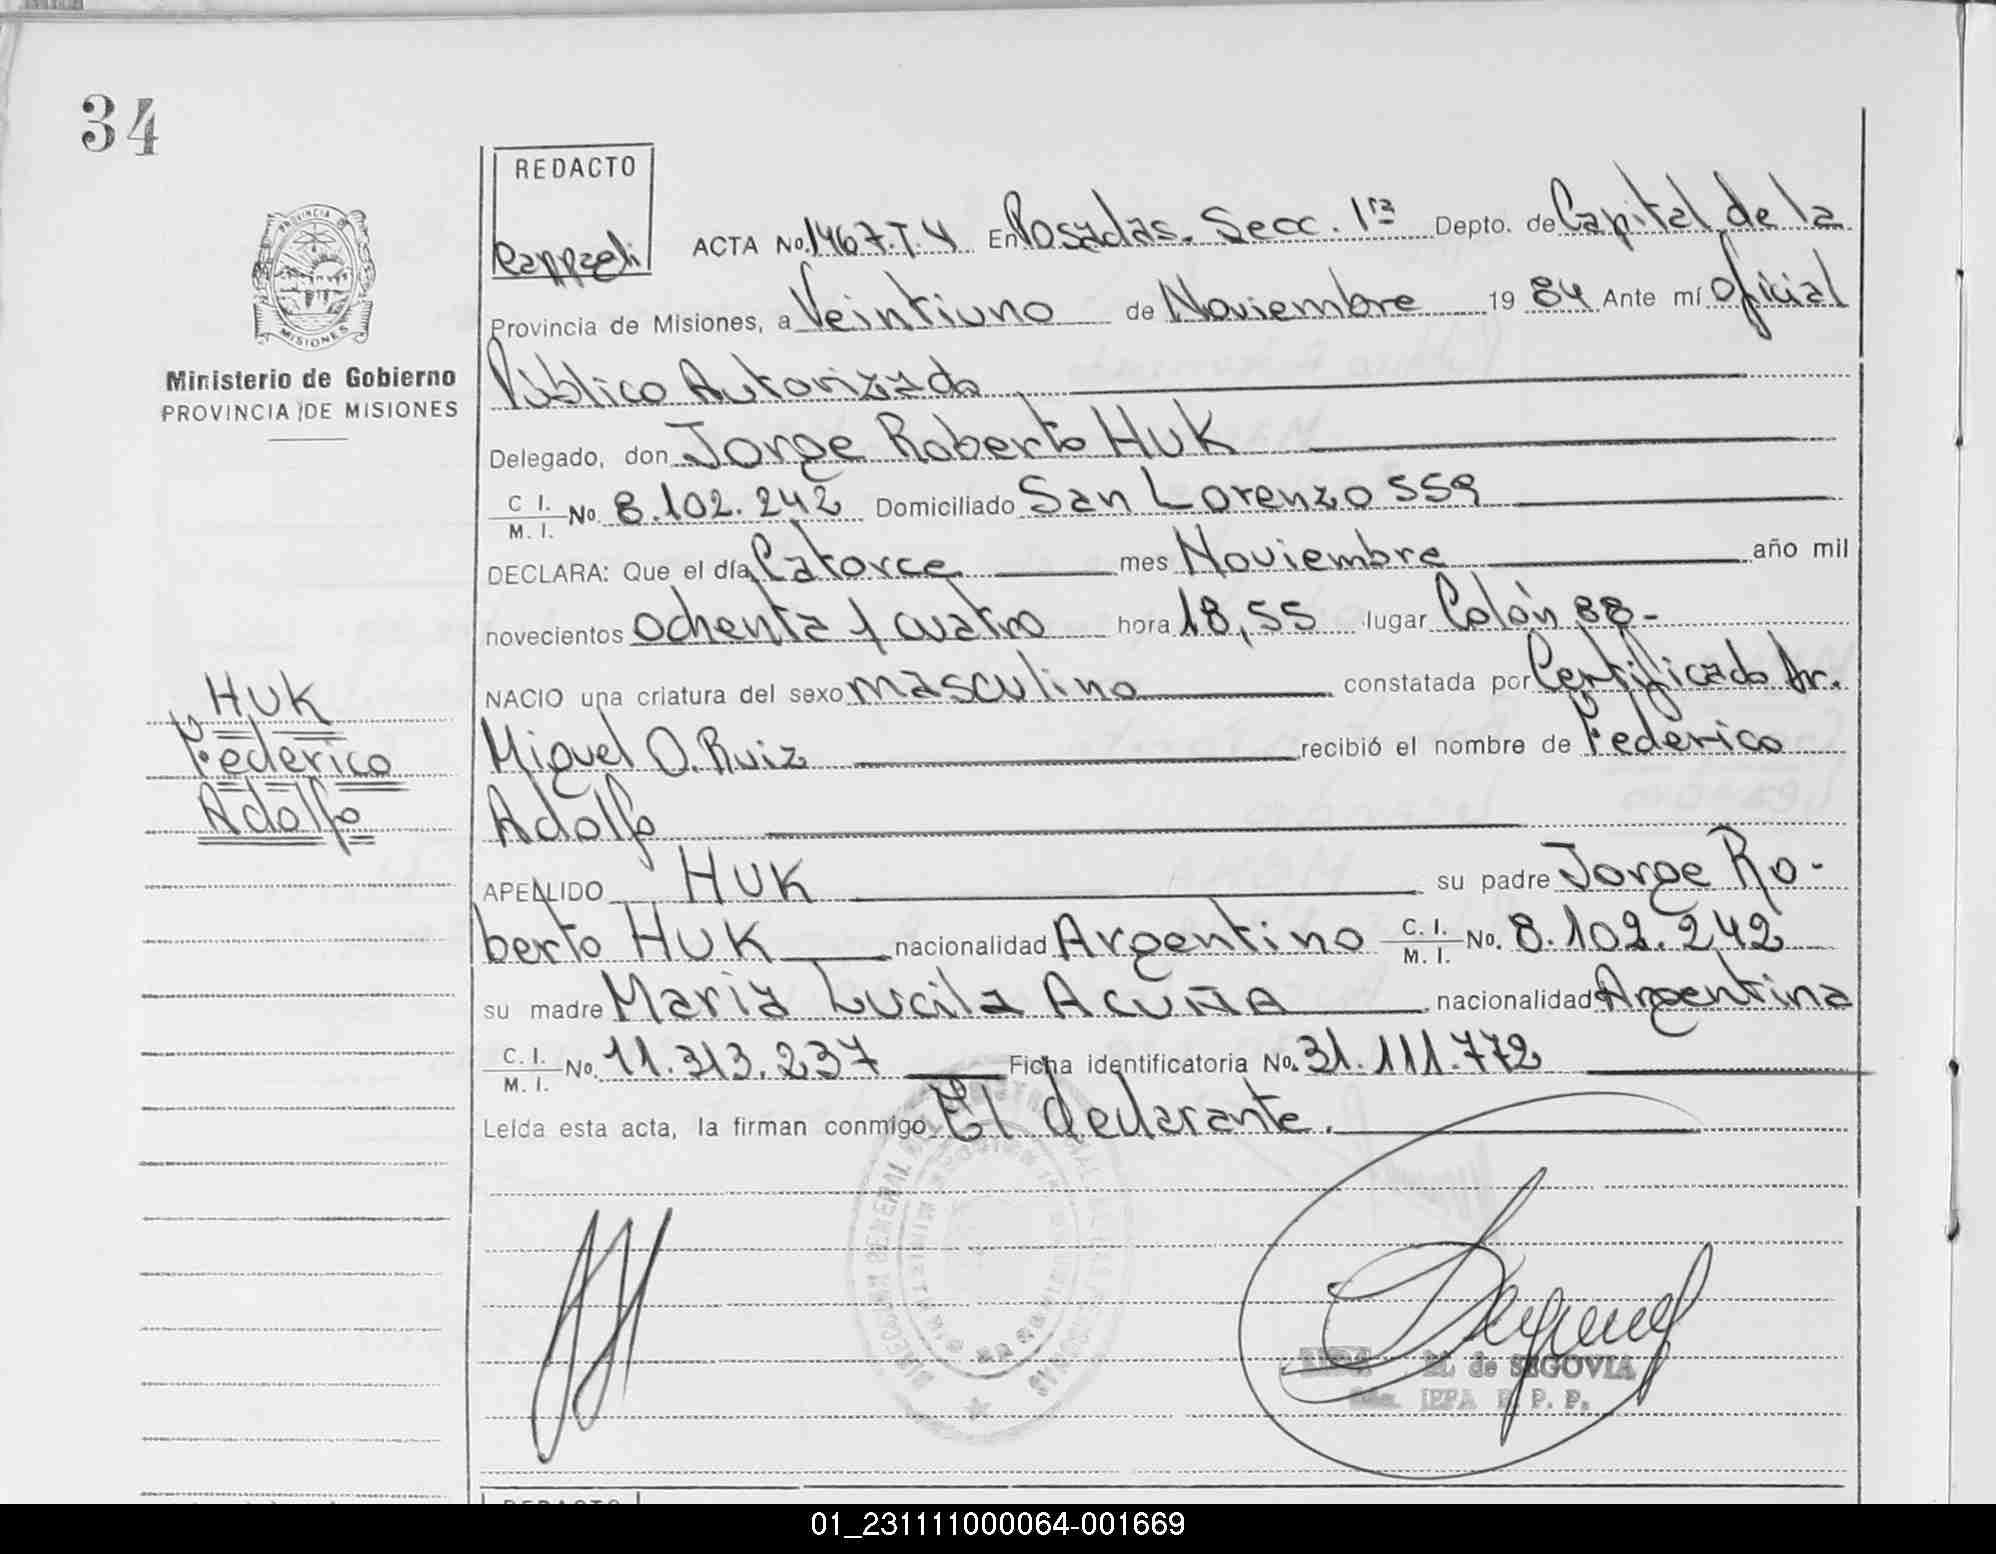 34
REDACTO
Cappaeli
ACTA No. 1467.T.4 En Posadas. Secc. 1ra Depto. de Capital de la
Provincia de Misiones, a Veintiuno de Noviembre 19 84 Ante mí Oficial
Público Autorizado
Delegado, don Jorge Roberto HUK
C. I. M. I. No. 8.102.242 Domiciliado San Lorenzo 559
DECLARA: Que el día Catorce mes Noviembre año mil
novecientos ochenta y cuatro hora 18,55 lugar Colón 88-
NACIO una criatura del sexo masculino constatada por Certificado Dr.
Miguel O. Ruiz recibió el nombre de Federico
Adolfo
APELLIDO HUK su padre Jorge Ro-
berto HUK nacionalidad Argentino C. I. M. I. No. 8.102.242
su madre Maria Lucila ACUÑA nacionalidad Argentina
C. I. M. I. No. 11.313.237 Ficha identificatoria No. 31.111.772
Leída esta acta, la firman conmigo El declarante.
PROVINCIA DE
MISIONES
Ministerio de Gobierno
PROVINCIA DE MISIONES
HUK
Federico
Adolfo
M. de SEGOVIA
REDACTO
01_231111000064-001669